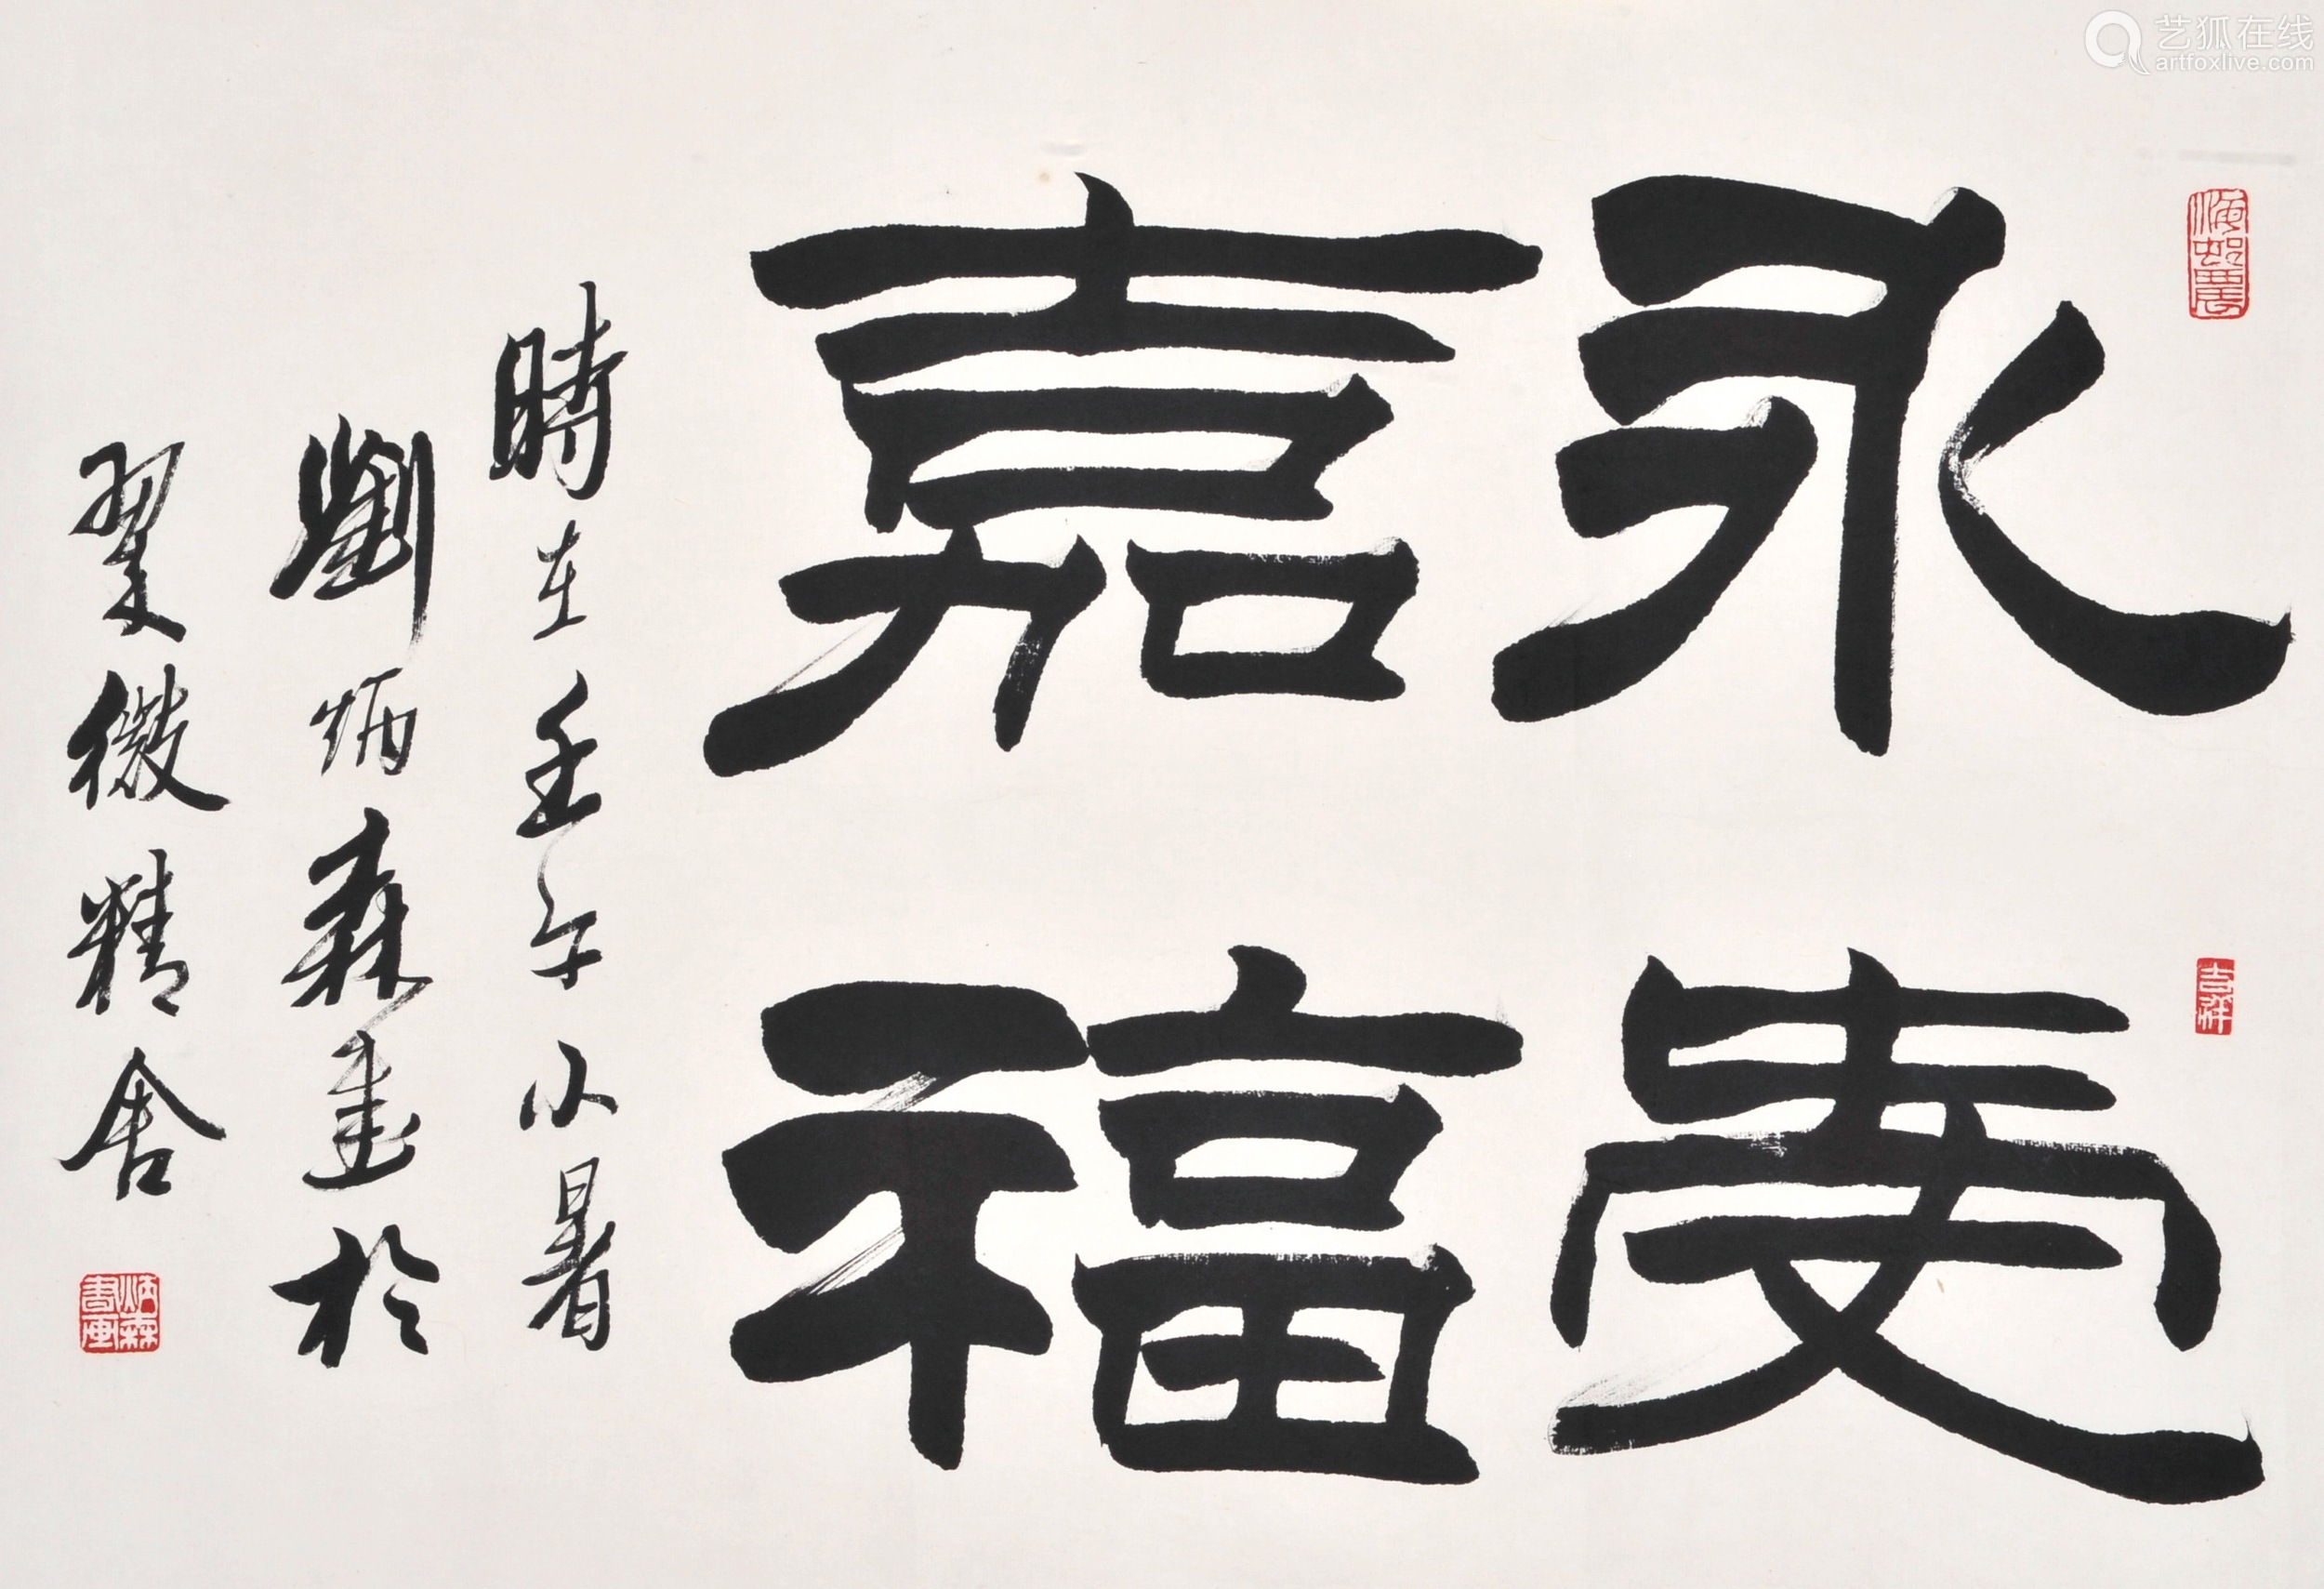 艺狐在线
artfoxlive.com
永受
嘉福
時在壬午小暑
劉炳森書於
翠微精舍
吉祥
炳森
書画